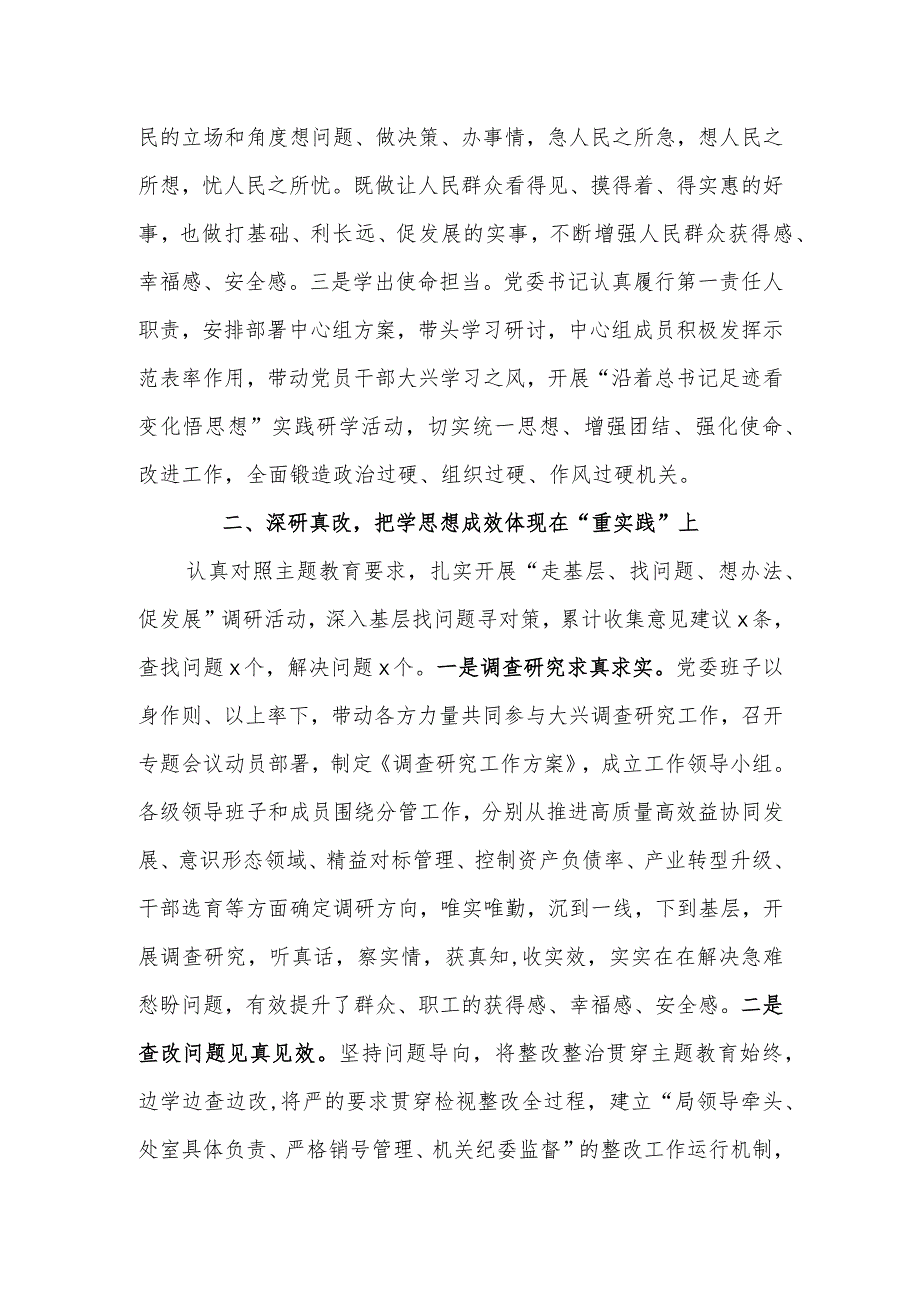 民的立场和角度想问题、做决策、办事情，急人民之所急，想人民之
所想，忧人民之所忧。既做让人民群众看得见、摸得着、得实惠的好
事，也做打基础、利长远、促发展的实事，不断增强人民群众获得感、
幸福感、安全感。三是学出使命担当。党委书记认真履行第一责任人
职责，安排部署中心组方案，带头学习研讨，中心组成员积极发挥示
范表率作用，带动党员干部大兴学习之风，开展“沿着总书记足迹看
变化悟思想”实践研学活动，切实统一思想、增强团结、强化使命、
改进工作，全面锻造政治过硬、组织过硬、作风过硬机关。
二、深研真改，把学思想成效体现在“重实践”上
认真对照主题教育要求，扎实开展“走基层、找问题、想办法、
促发展”调研活动，深入基层找问题寻对策，累计收集意见建议x条，
查找问题x个，解决问题x个。一是调查研究求真求实。党委班子以
身作则、以上率下，带动各方力量共同参与大兴调查研究工作，召开
专题会议动员部署，制定《调查研究工作方案》，成立工作领导小组。
各级领导班子和成员围绕分管工作，分别从推进高质量高效益协同发
展、意识形态领域、精益对标管理、控制资产负债率、产业转型升级、
干部选育等方面确定调研方向，唯实唯勤，沉到一线，下到基层，开
展调查研究，听真话，察实情，获真知,收实效，实实在在解决急难
愁盼问题，有效提升了群众、职工的获得感、幸福感、安全感。二是
查改问题见真见效。坚持问题导向，将整改整治贯穿主题教育始终，
边学边查边改,将严的要求贯穿检视整改全过程，建立“局领导牵头、
处室具体负责、严格销号管理、机关纪委监督”的整改工作运行机制，